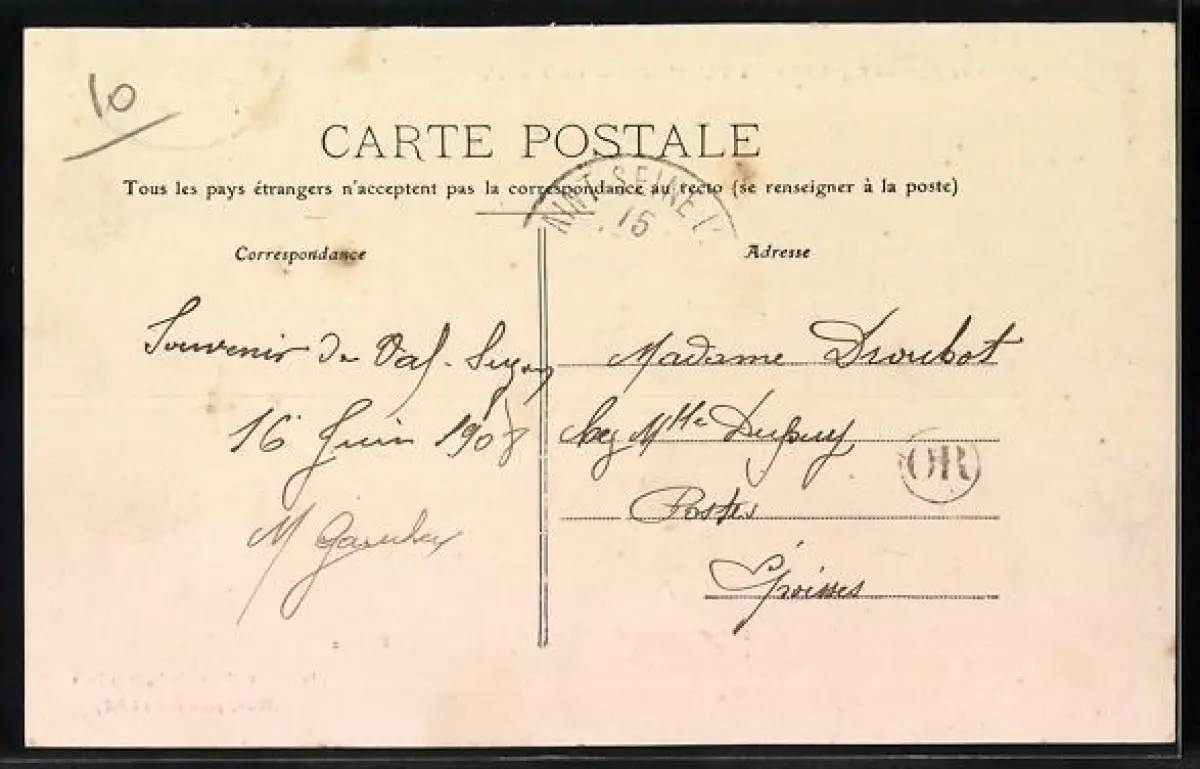 10
CARTE POSTALE
Tous les pays étrangers n'acceptent pas la correspondance au recto (se renseigner à la poste)
NINT SEINE L'
15
Correspondance
Adresse
Souvenir de Val-Suzon
16 Juin 1908
M
Madame Droubot
chez Mlle Dupuy
OR
Postes
Époisses